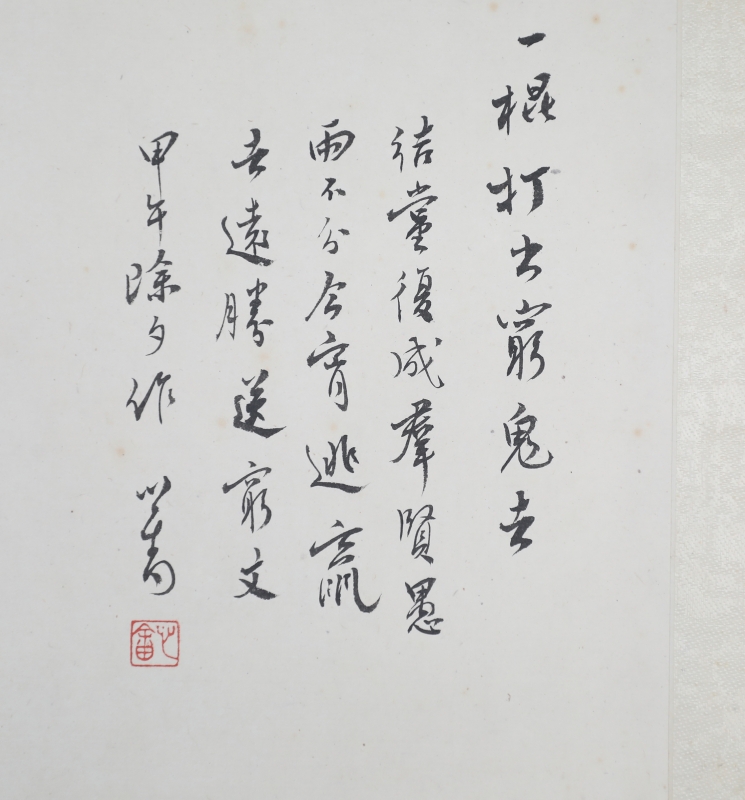 一棍打出窮鬼去
結黨復成羣賢愚
兩不分今宵逃羸
去遠勝送窮文
甲午除夕作
心畬